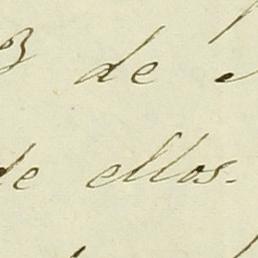 3 de
de ellos.